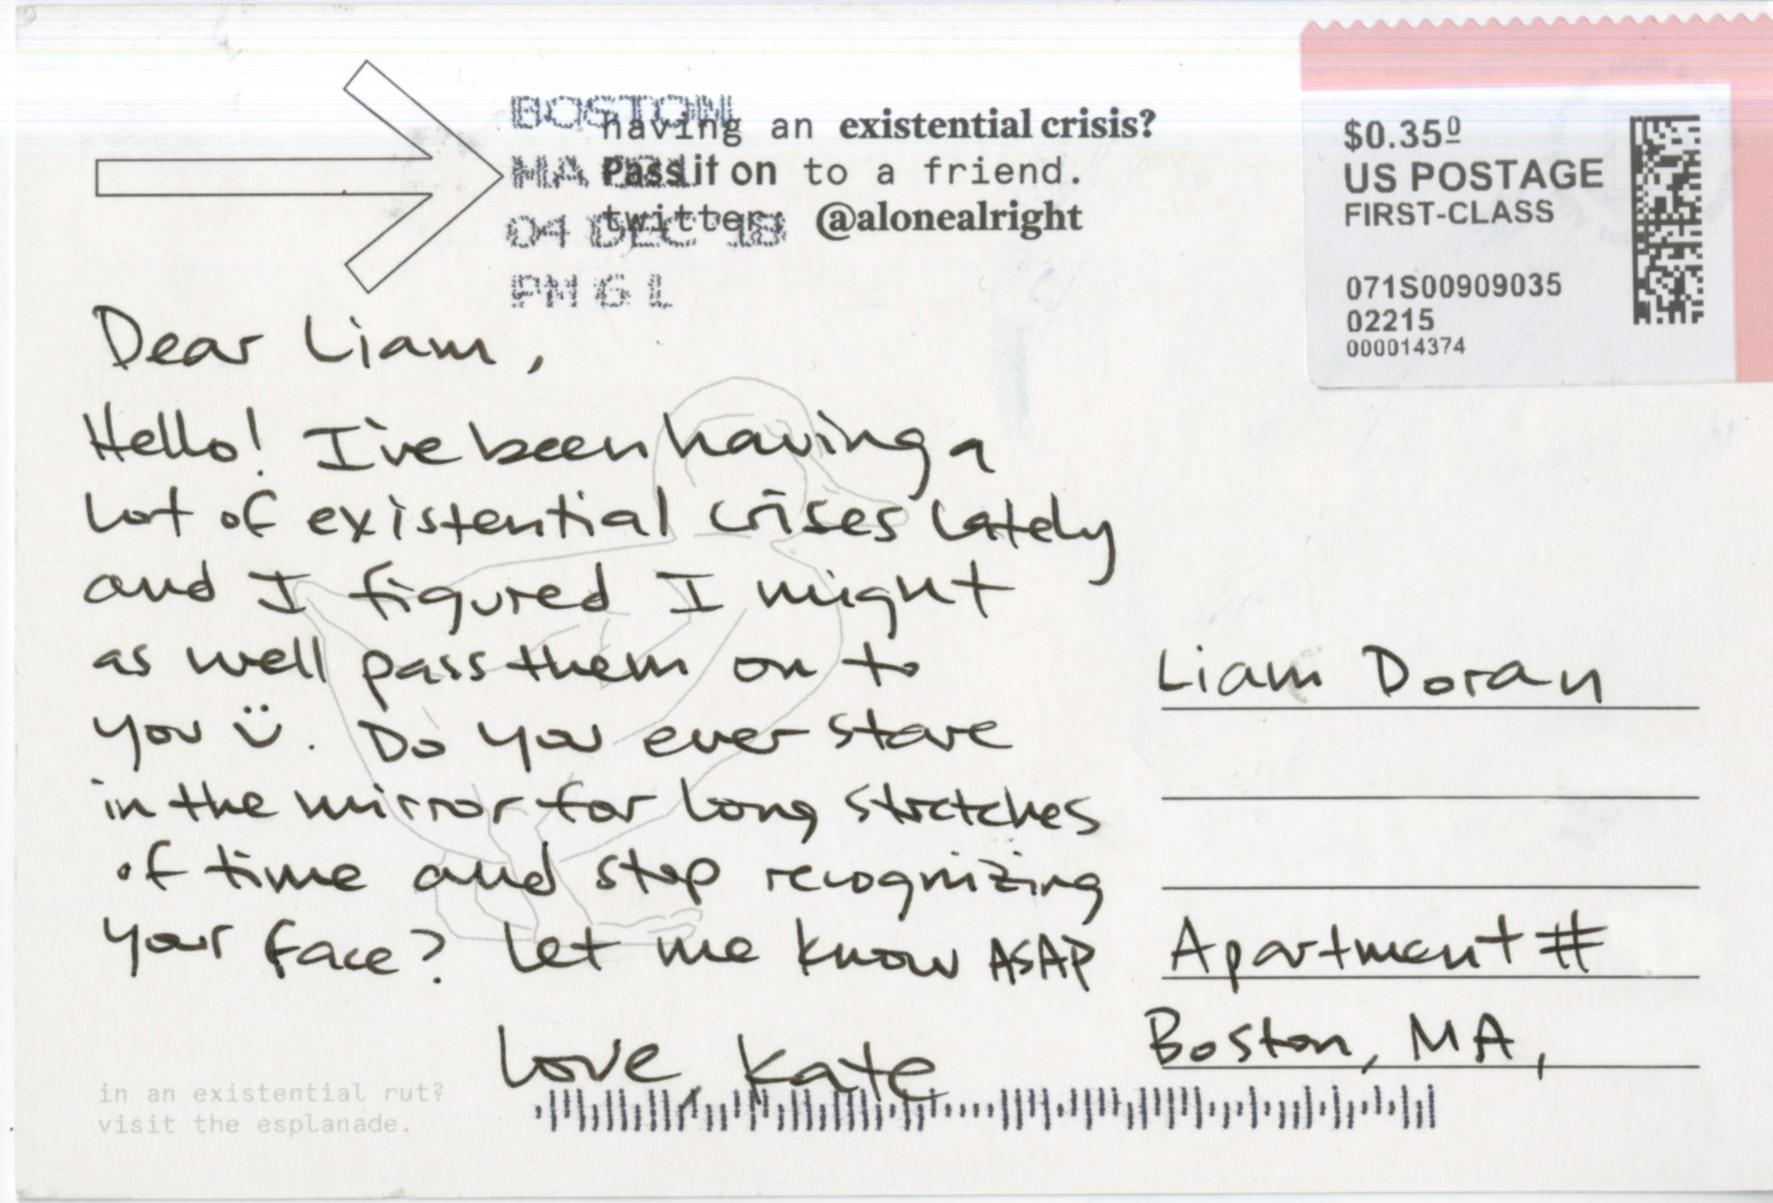 BOSTON
MA
04 DEC 18
PM 6 L
having an existential crisis?
Pass it on to a friend.
twitter: @alonealright
$0.350
US POSTAGE
FIRST-CLASS
071S00909035
02215
000014374
Dear Liam,
Hello! I've been having a
lot of existential crises lately
and I figured I might
as well pass them on to
you ü. Do you ever stare
in the mirror for long stretches
of time and stop recognizing
your face? Let me know ASAP
Love, Kate
Liam Doran
Apartment #
Boston, MA,
in an existential rut?
visit the esplanade.